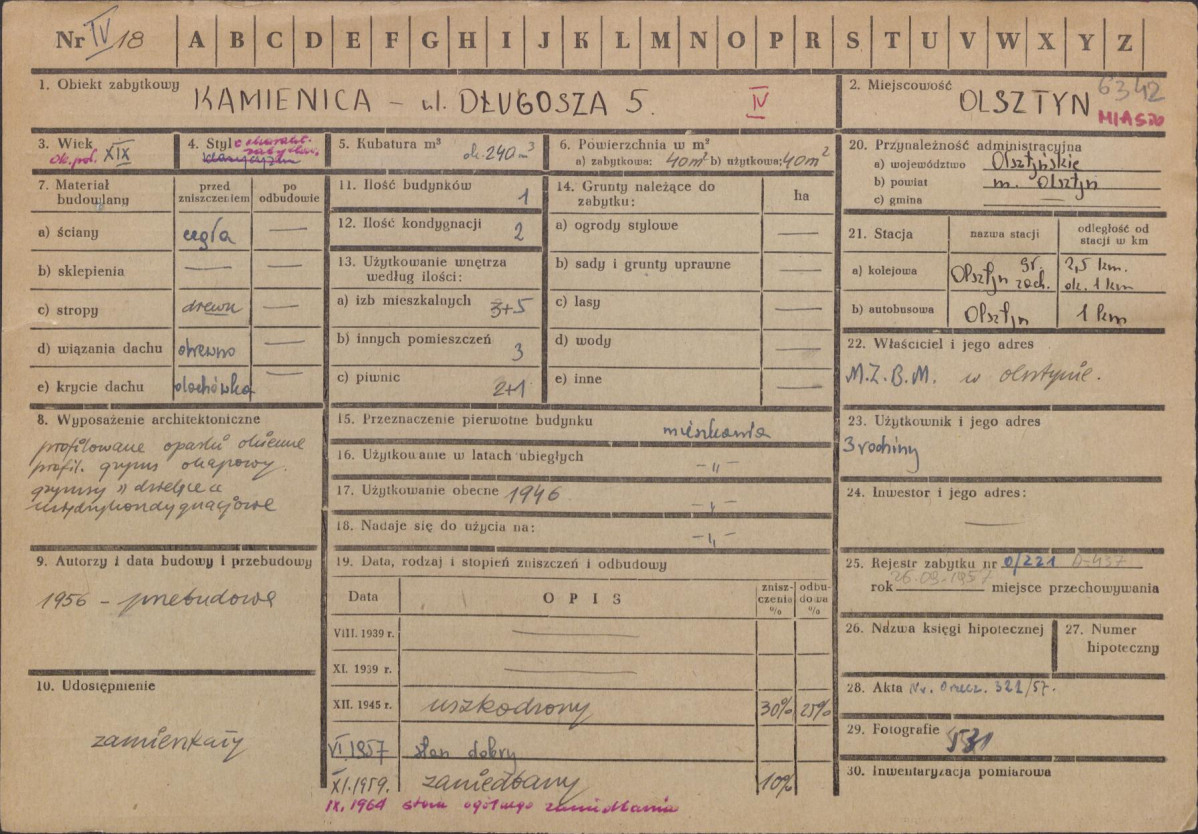 Nr IV/18 A B C D E F G H I J K L M N O P R S T U V W X Y Z
1. Obiekt zabytkowy
KAMIENICA - ul. DŁUGOSZA 5. IV
2. Miejscowość
OLSZTYN 6342
MIASTO
3. Wiek
ok. poł. XIX
4. Styl
5. Kubatura m³
ok. 240 m³
6. Powierzchnia w m²
a) zabytkowa: 40m² b) użytkowa: 40m²
7. Materiał budowlany
przed zniszczeniem
po odbudowie
a) ściany cegła —
b) sklepienia — —
c) stropy drewn —
d) wiązania dachu drewno —
e) krycie dachu dachówka —
8. Wyposażenie architektoniczne
profilowane opaski okienne
profil. gzyms okapowy.
gzymsy
międzykondygnacjowe
9. Autorzy i data budowy i przebudowy
1956 - przebudowa
10. Udostępnienie
zamieszkały
11. Ilość budynków 1
12. Ilość kondygnacji 2
13. Użytkowanie wnętrza według ilości:
a) izb mieszkalnych 3+5
b) innych pomieszczeń 3
c) piwnic 2+1
14. Grunty należące do zabytku:
ha
a) ogrody stylowe —
b) sady i grunty uprawne —
c) lasy —
d) wody —
e) inne —
15. Przeznaczenie pierwotne budynku mieszkania
16. Użytkowanie w latach ubiegłych -„-
17. Użytkowanie obecne 1946 -„-
18. Nadaje się do użycia na: -„-
19. Data, rodzaj i stopień zniszczeń i odbudowy
Data OPIS zniszczenia % odbudowa %
VIII. 1939 r. —
XI. 1939 r. —
XII. 1945 r. uszkodzony 30% 25%
VI.1957 stan dobry
XI.1959. zaniedbany 10%
IX.1964 stan ogólnego zaniedbania
20. Przynależność administracyjna
a) województwo Olsztyńskie
b) powiat m. Olsztyn
c) gmina —
21. Stacja nazwa stacji odległość od stacji w km
a) kolejowa Olsztyn gł. zach. 2,5 km. ok. 1 km
b) autobusowa Olsztyn 1 km
22. Właściciel i jego adres
M.Z.B.M. w Olsztynie.
23. Użytkownik i jego adres
3 rodziny
24. Inwestor i jego adres:
—
25. Rejestr zabytku nr 0/221 A-437
rok 26.09.1957 miejsce przechowywania
26. Nazwa księgi hipotecznej
27. Numer hipoteczny
28. Akta Nr. Orzecz. 321/57.
29. Fotografie 531
30. Inwentaryzacja pomiarowa